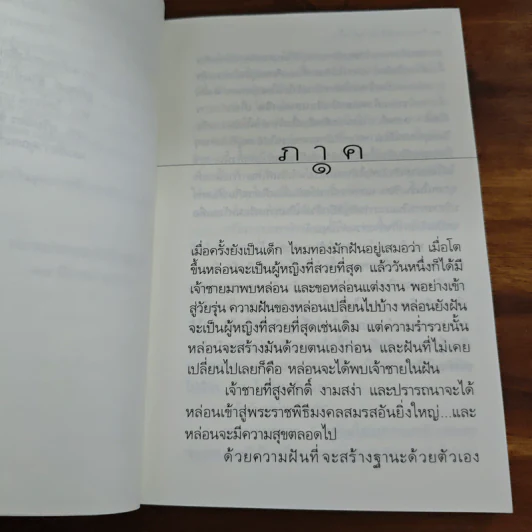 ภาค
๑
เมื่อครั้งยังเป็นเด็ก ไหมทองมักฝันอยู่เสมอว่า เมื่อโต
ขึ้นหล่อนจะเป็นผู้หญิงที่สวยที่สุด แล้ววันหนึ่งก็ได้มี
เจ้าชายมาพบหล่อน และขอหล่อนแต่งงาน พอย่างเข้า
สู่วัยรุ่น ความฝันของหล่อนเปลี่ยนไปบ้าง หล่อนยังฝัน
จะเป็นผู้หญิงที่สวยที่สุดเช่นเดิม แต่ความร่ำรวยนั้น
หล่อนจะสร้างมันด้วยตนเองก่อน และฝันที่ไม่เคย
เปลี่ยนไปเลยก็คือ หล่อนจะได้พบเจ้าชายในฝัน
เจ้าชายที่สูงศักดิ์ งามสง่า และปรารถนาจะได้
หล่อนเข้าสู่พระราชพิธีมงคลสมรสอันยิ่งใหญ่...และ
หล่อนจะมีความสุขตลอดไป
ด้วยความฝันที่จะสร้างฐานะด้วยตัวเอง